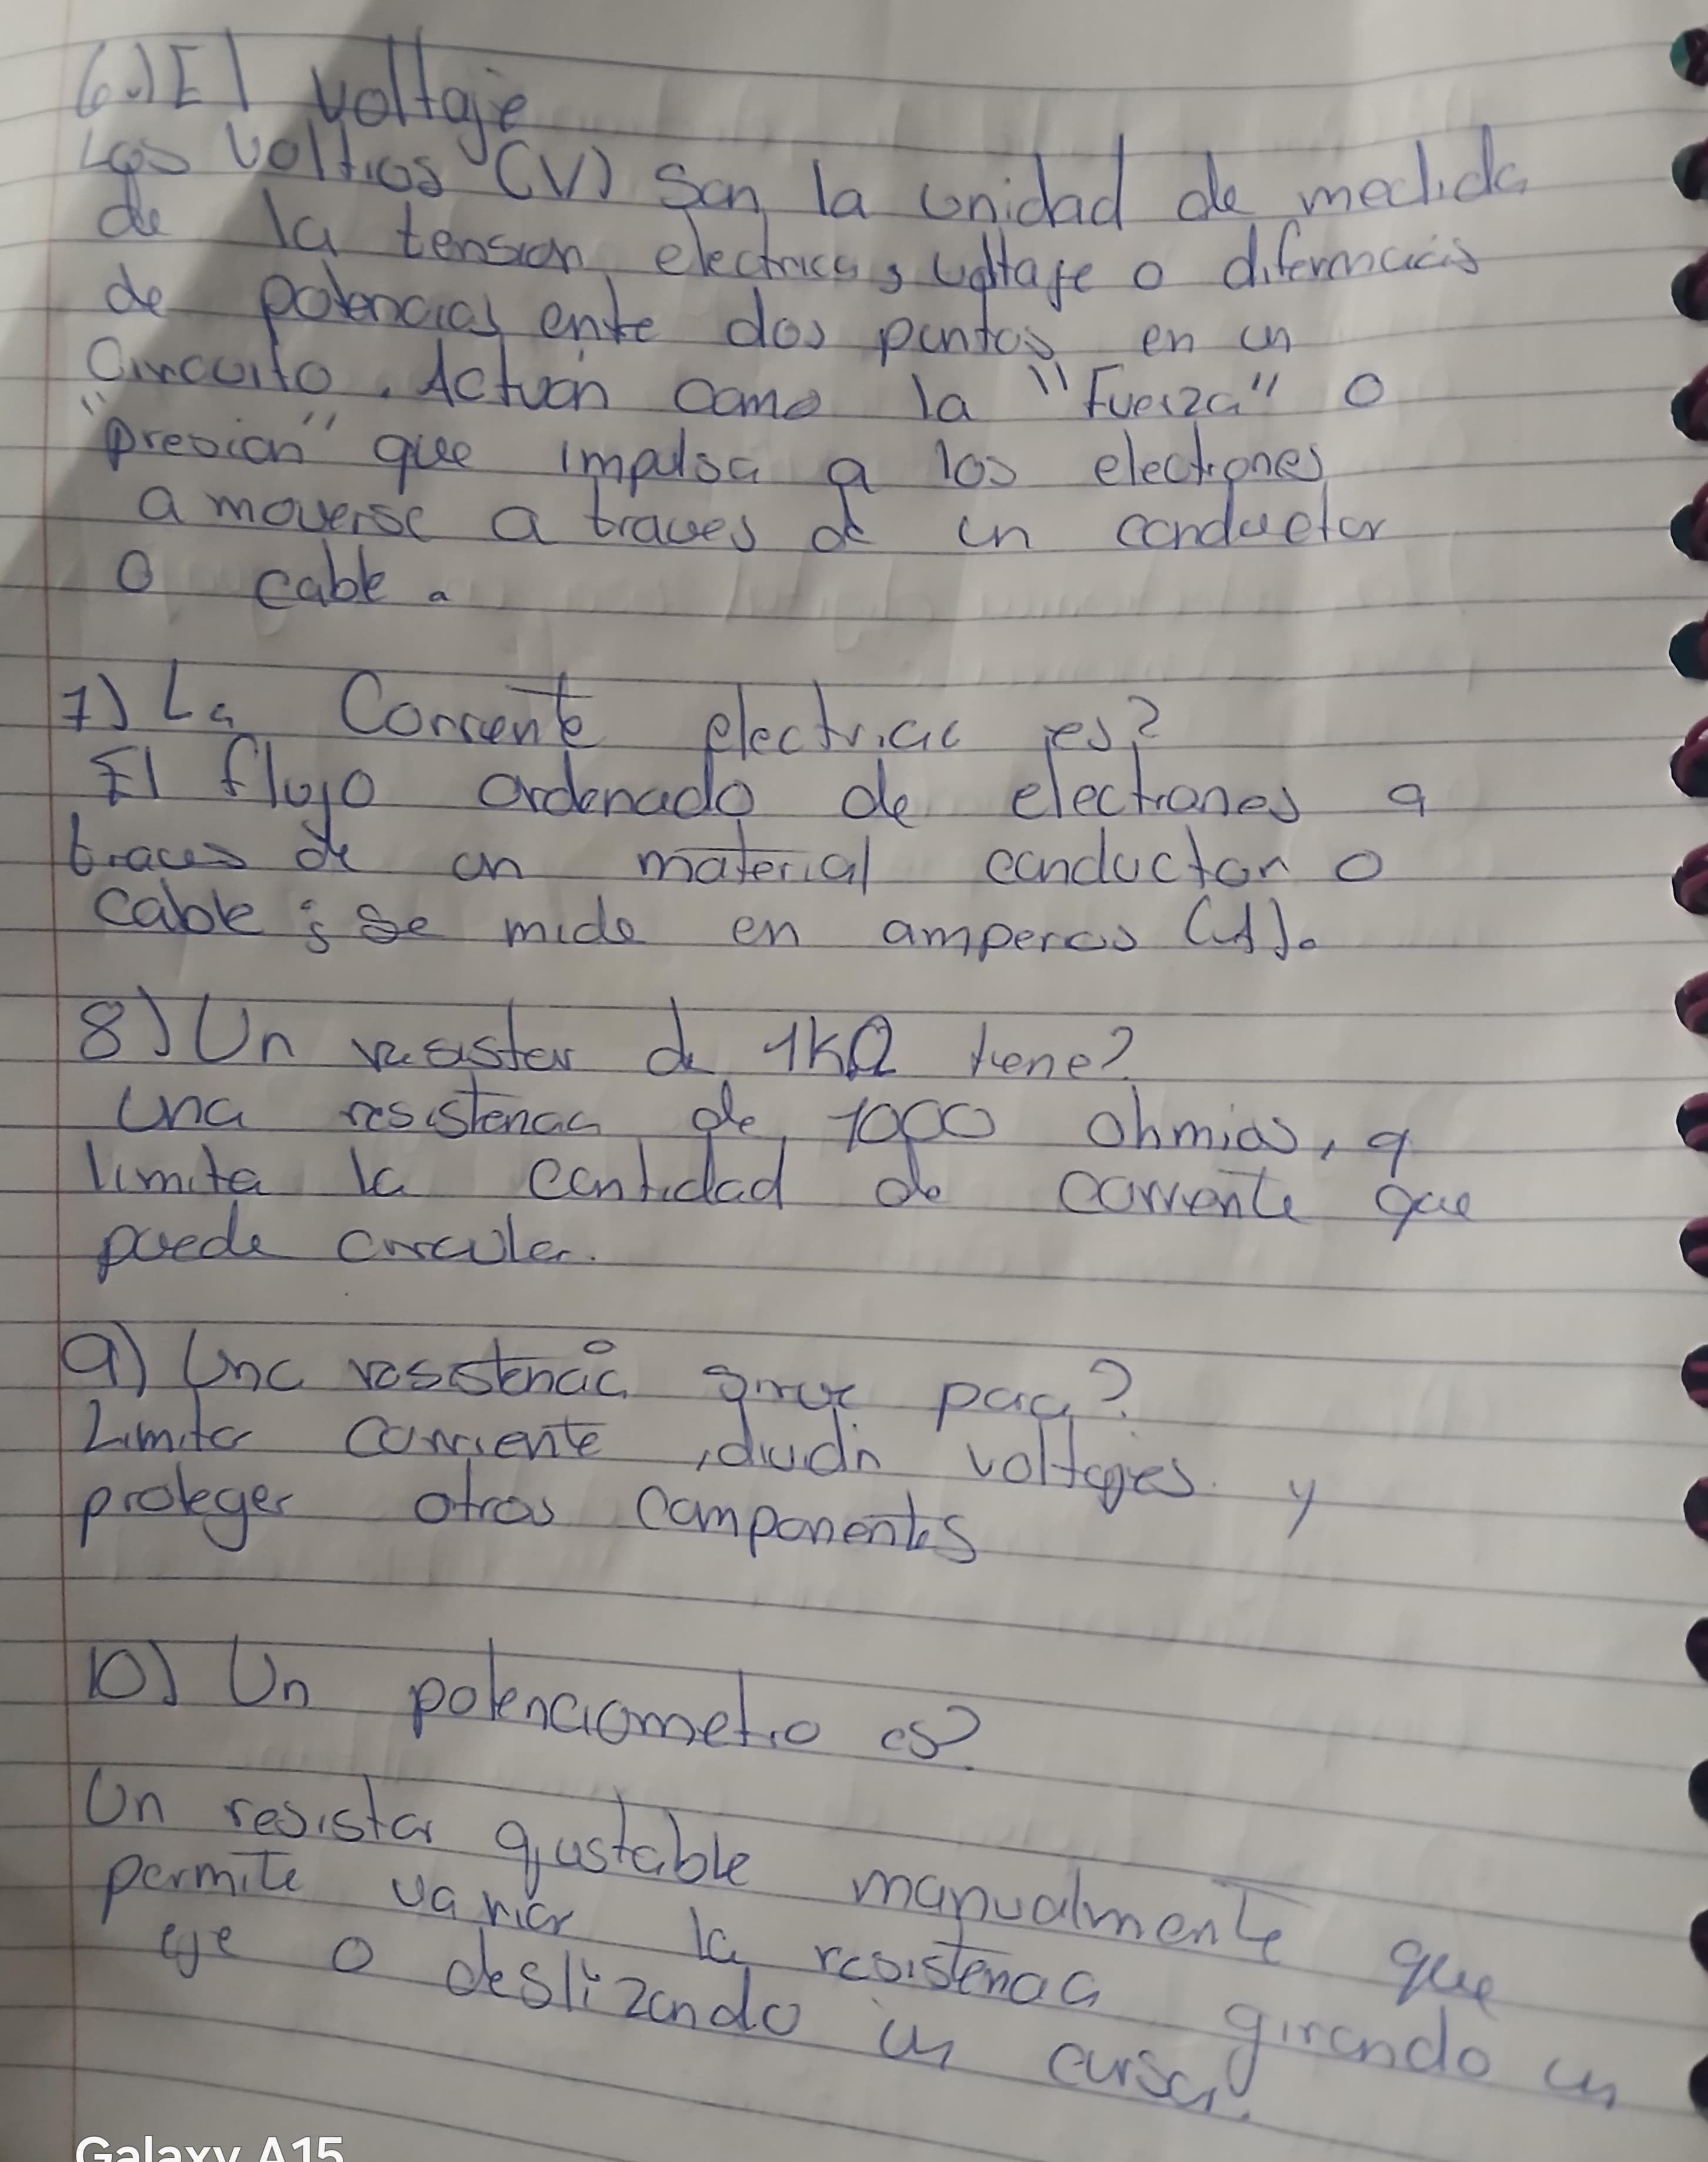 6.) El voltaje
Los Voltios (V) Son la unidad de medida
de la tension electrica, voltaje o diferencias
de potencial ente dos puntos en un
Circuito. Actúan como la "Fuerza" o
"presion" que impulsa a los electrones
a moverse a traves de un conductor
o cable.
7) La Corriente electrica es?
El flujo ordenado de electrones a
traves de un material conductor o
Cable; se mide en amperios (A).
8) Un resistor de 1kΩ tiene?
Una resistencia de 1000 ohmios, q
limita la cantidad de corriente que
puede circular.
9) Una resistencia sirve para?
Limitar corriente, dividir voltajes y
proteger otros componentes
10) Un potenciometro es?
Un resistor ajustable manualmente que
permite variar la resistencia girando un
eje o deslizando un cursor.
Galaxy A15